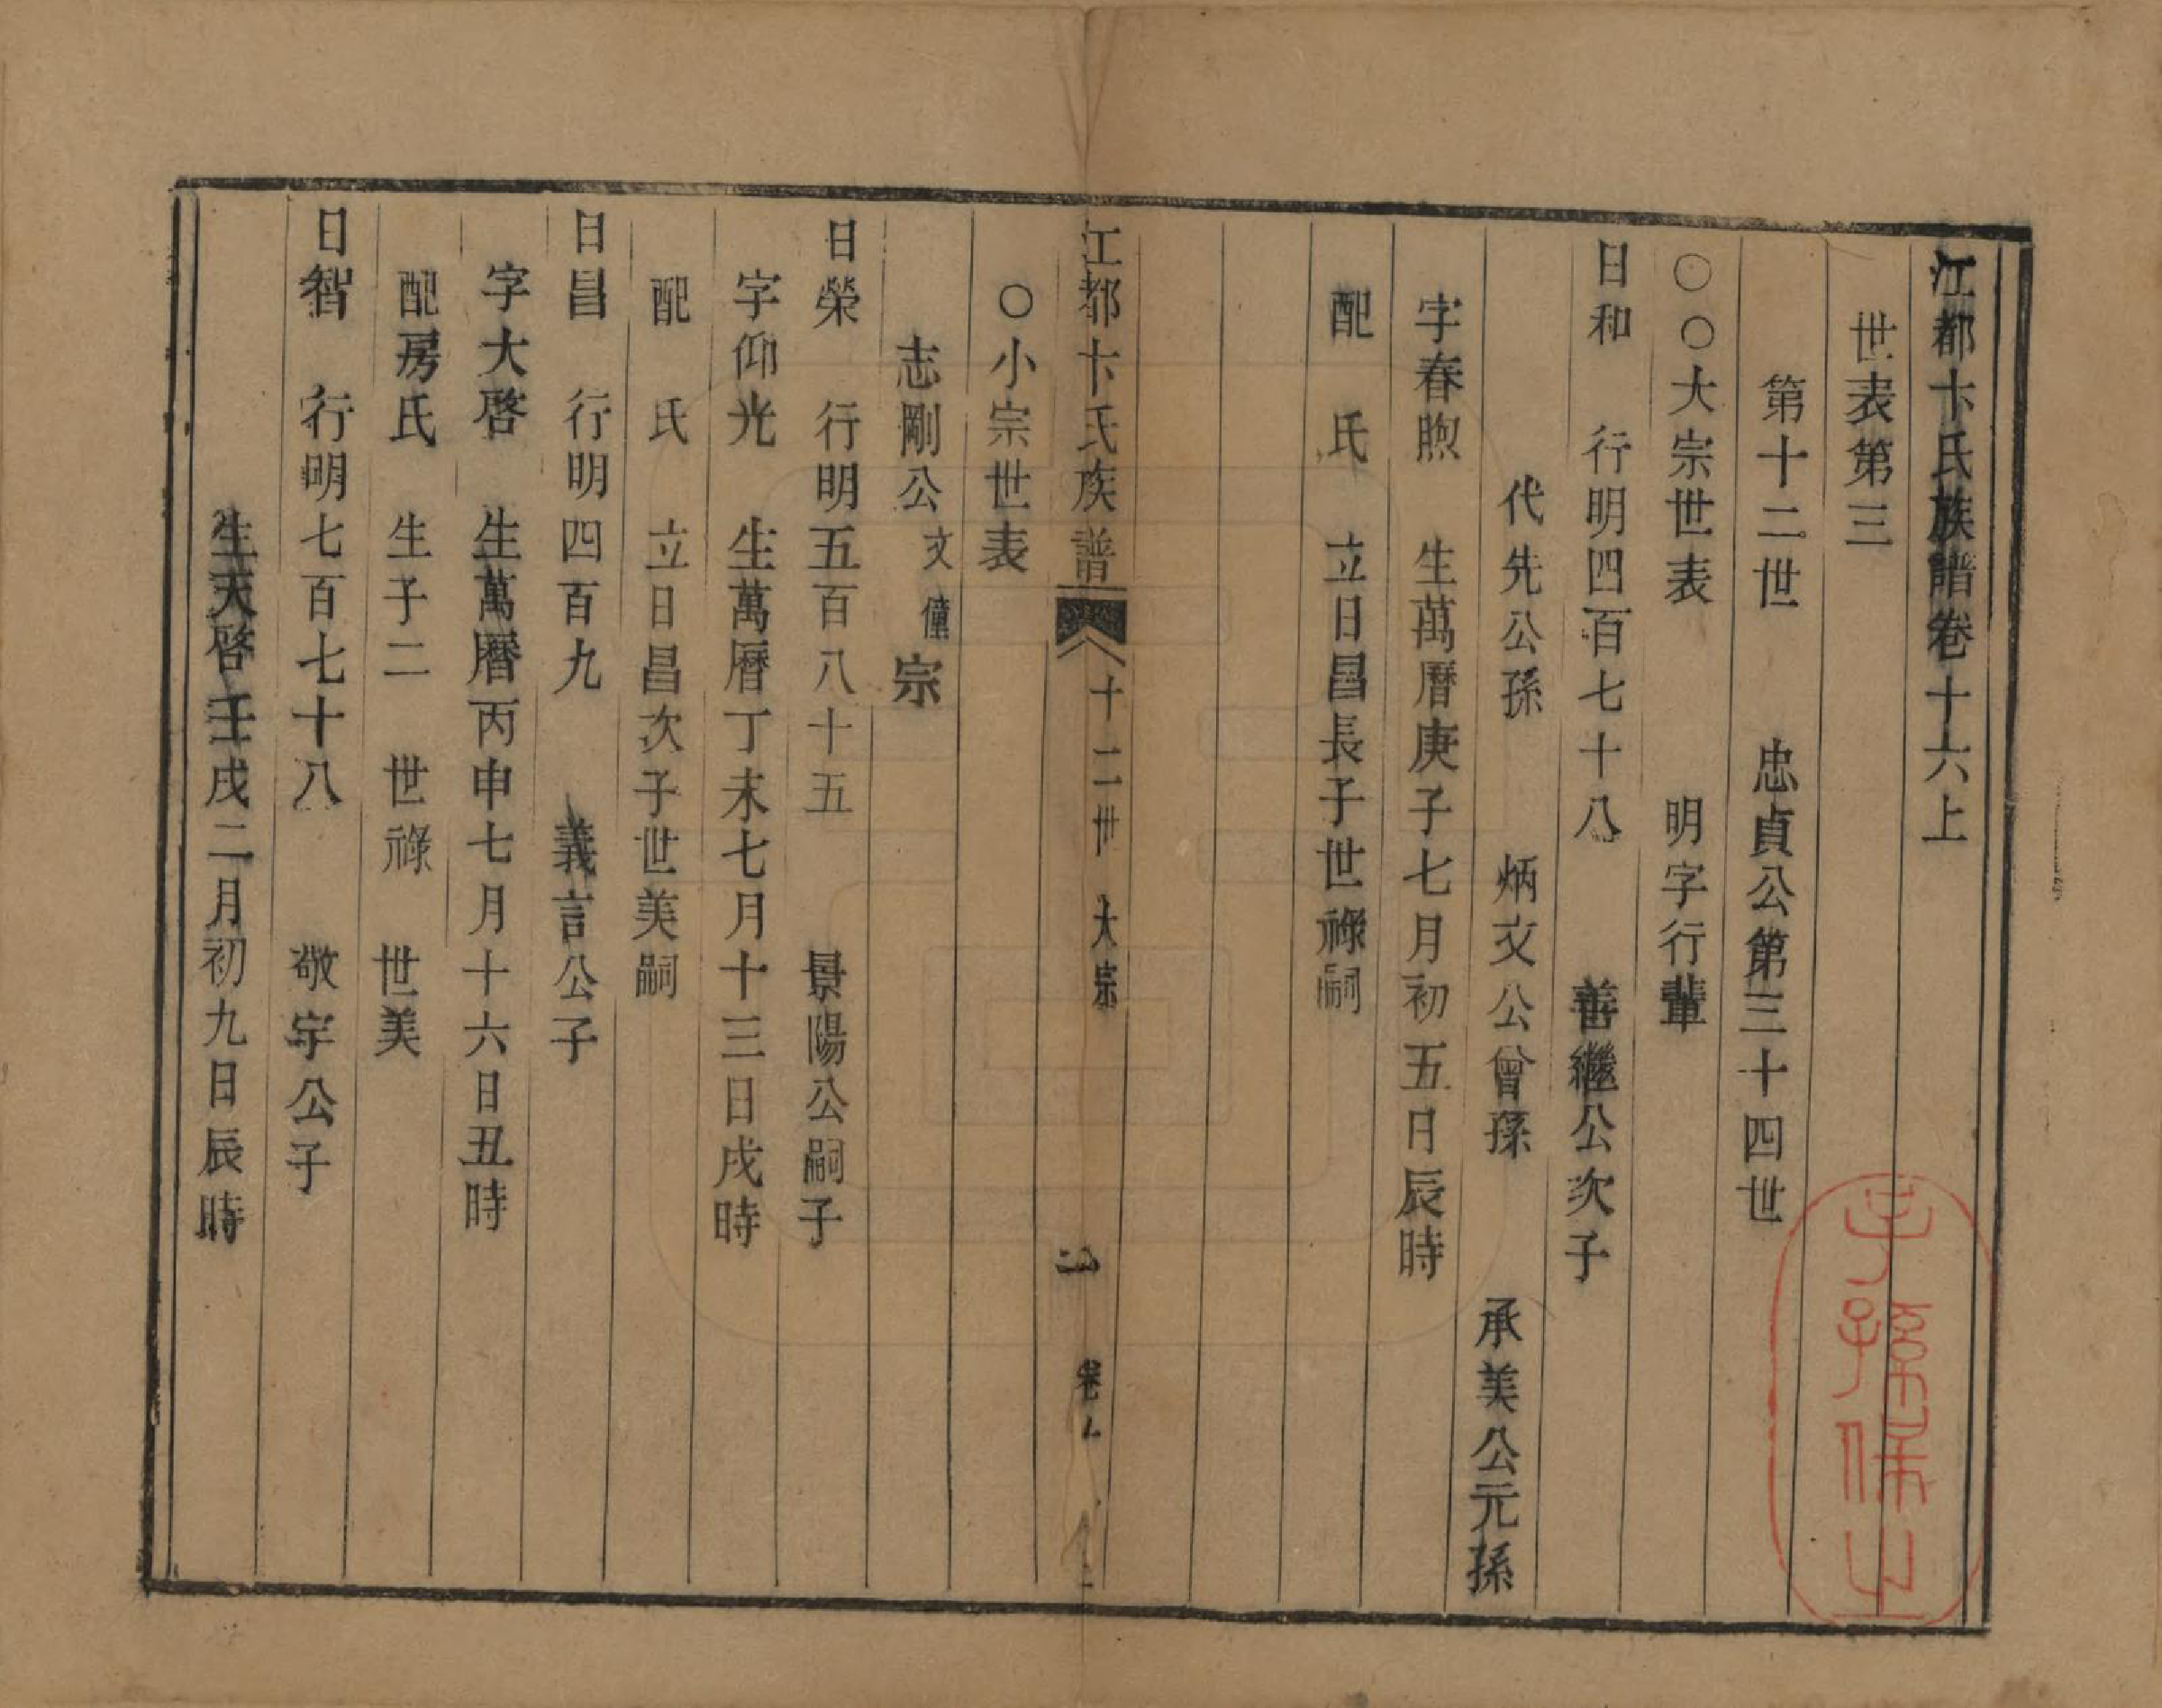 江都卞氏族譜卷十六上
世表第三
第十二世　忠貞公第三十四世
○○大宗世表　明字行輩
日和　行明四百七十八　善繼公次子
代先公孫　炳文公曾孫　承美公元孫
字春煦　生萬曆庚子七月初五日辰時
配　氏　立日昌長子世祿嗣
江都卞氏族譜　十二世　大宗　一　卷
○小宗世表
志剛公文僮宗
日榮　行明五百八十五　景陽公嗣子
字仰光　生萬曆丁未七月十三日戌時
配　氏　立日昌次子世美嗣
日昌　行明四百九　義言公子
字大啓　生萬曆丙申七月十六日丑時
配房氏　生子二　世祿　世美
日智　行明七百七十八　敬宇公子
生天啓壬戌二月初九日辰時
子子孫孫保之